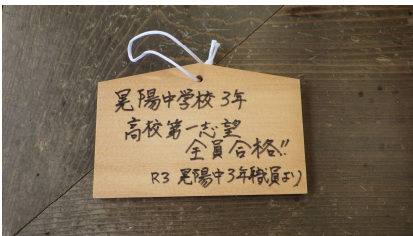 晃陽中学校3年
高校第一志望
全員合格!!
R3 晃陽中3年職員より